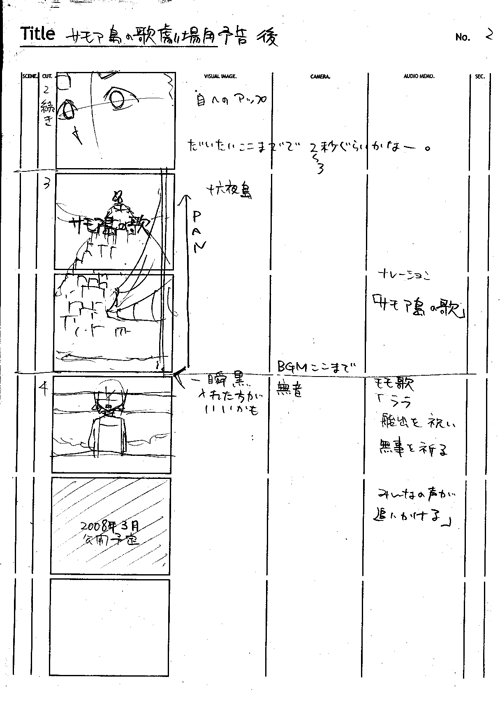 Title サモア島の歌劇場用予告 後
No. 2
SCENE. CUT. VISUAL IMAGE. CAMERA. AUDIO MEMO. SEC.
2
続き
目へのアップ
だいたいここまでで 2秒ぐらいかなー。
3
3
十六夜島
サモア島の歌
PAN
ナレーション
「サモア島の歌」
BGMここまで
4
一瞬黒
入れた方が
いいかも
無音
モモ歌
「ララ
船出を祝い
無事を祈る
みんなの声が
追いかける」
2008年3月
公開予定